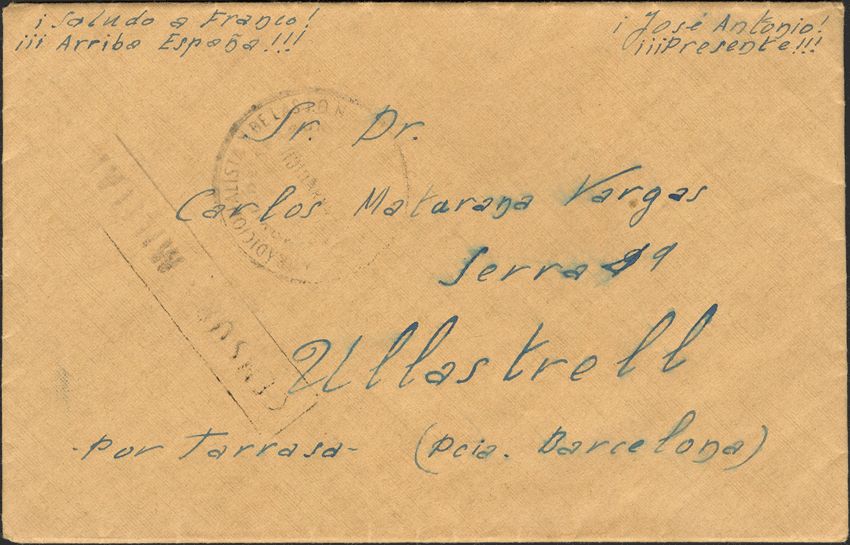 ¡Saludo a Franco!
¡¡¡Arriba España!!!
¡José Antonio!
¡¡¡Presente!!!
Sr. Dr.
Carlos Maturana Vargas
Serra
Ullastrell
-por Tarrasa- (Pcia. Barcelona)
CENSURA
MILITAR
DE LAS J.O.N.